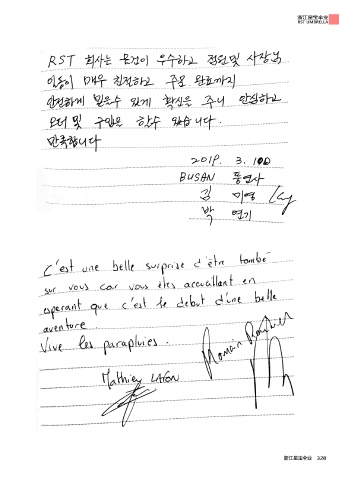 浙江星宝伞业
RST UMBRELLA
RST 회사는 물건이 우수하고 직원및 사장님
일동이 매우 친절하고 주문 완료까지
안전하게 받을수 있게 확신을 주니 안심하고
오더 및 구입을 할수 있습니다.
만족합니다
2019. 3. 10
BUSAN
김 미영
박 연기
C'est une belle surprise d'être tombé
sur vous car vous êtes accueillant en
esperant que c'est le debut d'une belle
aventure
Vive les parapluies.
Mathieu
Romain
浙江星宝伞业 328